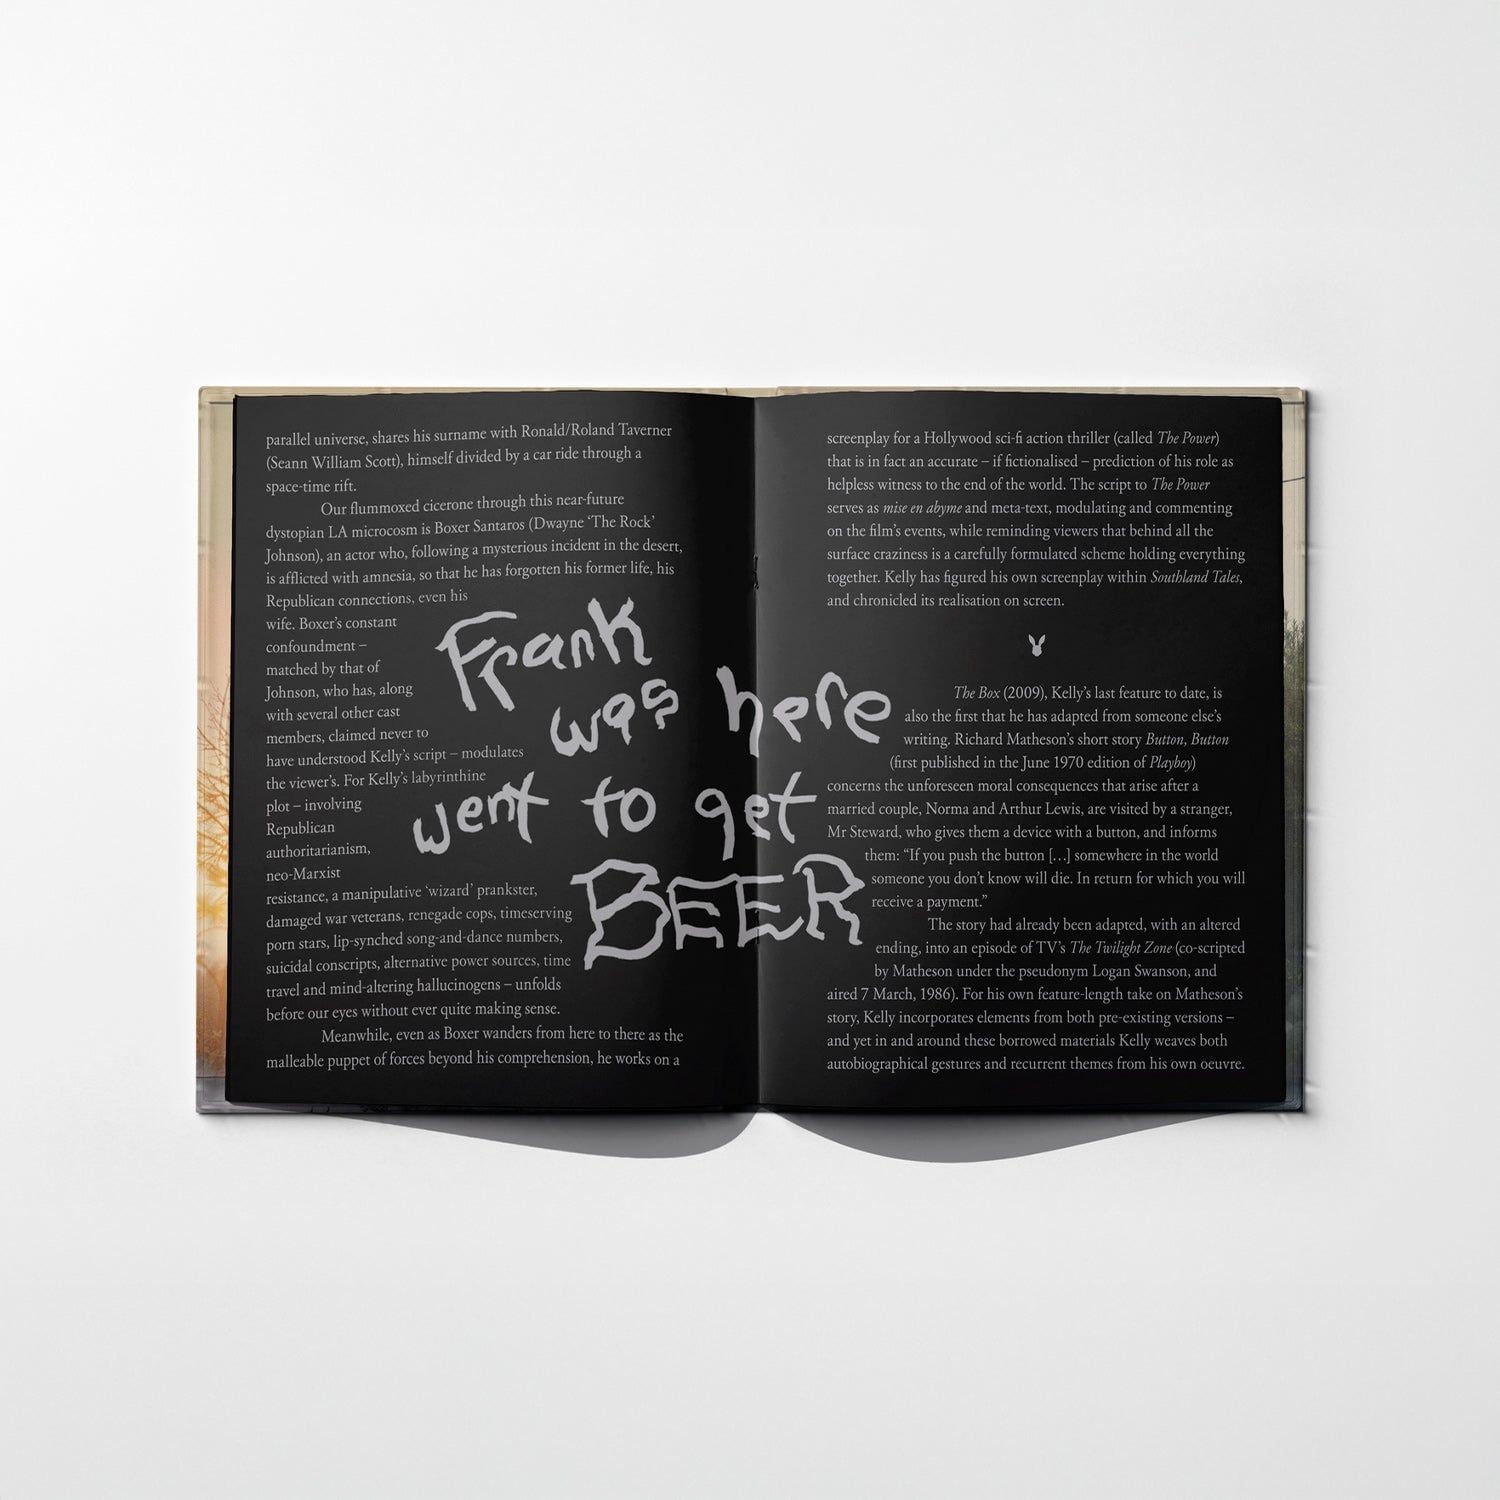 parallel universe, shares his surname with Ronald/Roland Taverner
(Seann William Scott), himself divided by a car ride through a
space-time rift.
Our flummoxed cicerone through this near-future
dystopian LA microcosm is Boxer Santaros (Dwayne ‘The Rock’
Johnson), an actor who, following a mysterious incident in the desert,
is afflicted with amnesia, so that he has forgotten his former life, his
Republican connections, even his
wife. Boxer’s constant
confoundment –
matched by that of
Johnson, who has, along
with several other cast
members, claimed never to
have understood Kelly’s script – modulates
the viewer’s. For Kelly’s labyrinthine
plot – involving
Republican
authoritarianism,
neo-Marxist
resistance, a manipulative ‘wizard’ prankster,
damaged war veterans, renegade cops, timeserving
porn stars, lip-synched song-and-dance numbers,
suicidal conscripts, alternative power sources, time
travel and mind-altering hallucinogens – unfolds
before our eyes without ever quite making sense.
Meanwhile, even as Boxer wanders from here to there as the
malleable puppet of forces beyond his comprehension, he works on a
Frank
was here
went to get
BEER
screenplay for a Hollywood sci-fi action thriller (called The Power)
that is in fact an accurate – if fictionalised – prediction of his role as
helpless witness to the end of the world. The script to The Power
serves as mise en abyme and meta-text, modulating and commenting
on the film’s events, while reminding viewers that behind all the
surface craziness is a carefully formulated scheme holding everything
together. Kelly has figured his own screenplay within Southland Tales,
and chronicled its realisation on screen.
The Box (2009), Kelly’s last feature to date, is
also the first that he has adapted from someone else’s
writing. Richard Matheson’s short story Button, Button
(first published in the June 1970 edition of Playboy)
concerns the unforeseen moral consequences that arise after a
married couple, Norma and Arthur Lewis, are visited by a stranger,
Mr Steward, who gives them a device with a button, and informs
them: “If you push the button […] somewhere in the world
someone you don’t know will die. In return for which you will
receive a payment.”
The story had already been adapted, with an altered
ending, into an episode of TV’s The Twilight Zone (co-scripted
by Matheson under the pseudonym Logan Swanson, and
aired 7 March, 1986). For his own feature-length take on Matheson’s
story, Kelly incorporates elements from both pre-existing versions –
and yet in and around these borrowed materials Kelly weaves both
autobiographical gestures and recurrent themes from his own oeuvre.